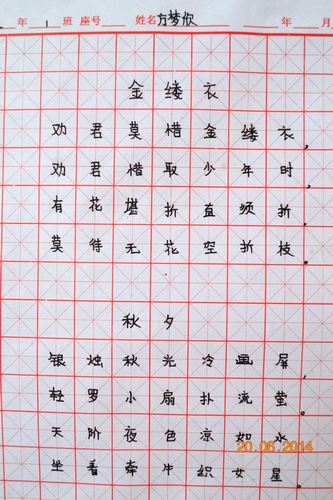 年 1 班 座号 姓名 方梦欣 年 月
金缕衣
劝君莫惜金缕衣，
劝君惜取少年时。
有花堪折直须折，
莫待无花空折枝。
秋夕
银烛秋光冷画屏，
轻罗小扇扑流萤。
天阶夜色凉如水，
坐看牵牛织女星。
20.06.2014